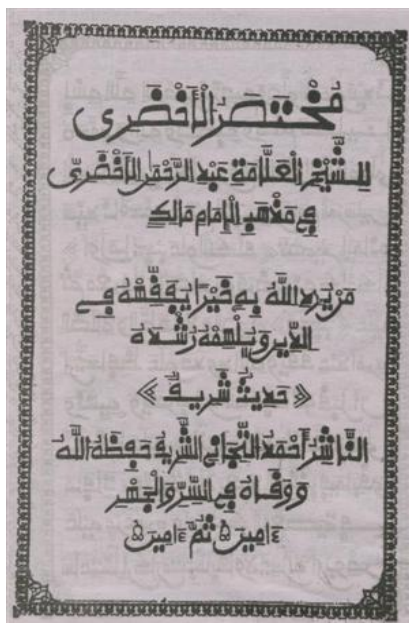 مُخْتَصَرُ الْأَخْضَرِى
لِلشَّيْخِ الْعَلَّامَةِ عَبْدِ الرَّحْمٰنِ الْأَخْضَرِىِّ
فِى مَذْهَبِ الْإِمَامِ مَالِك
مَنْ يُرِدِ اللَّهُ بِهِ خَيْرًا يُفَقِّهْهُ فِى
الدِّينِ وَيُلْهِمْهُ رُشْدَهُ
﴿ حَدِيثٌ شَرِيفٌ ﴾
النَّاشِرُ أَحْمَدُ التِّجَانِى الشَّرِيفُ حَفِظَهُ اللَّهُ
وَوَقَاهُ فِى السِّرِّ وَالْجَهْرِ
ءَامِين ثُمَّ ءَامِين